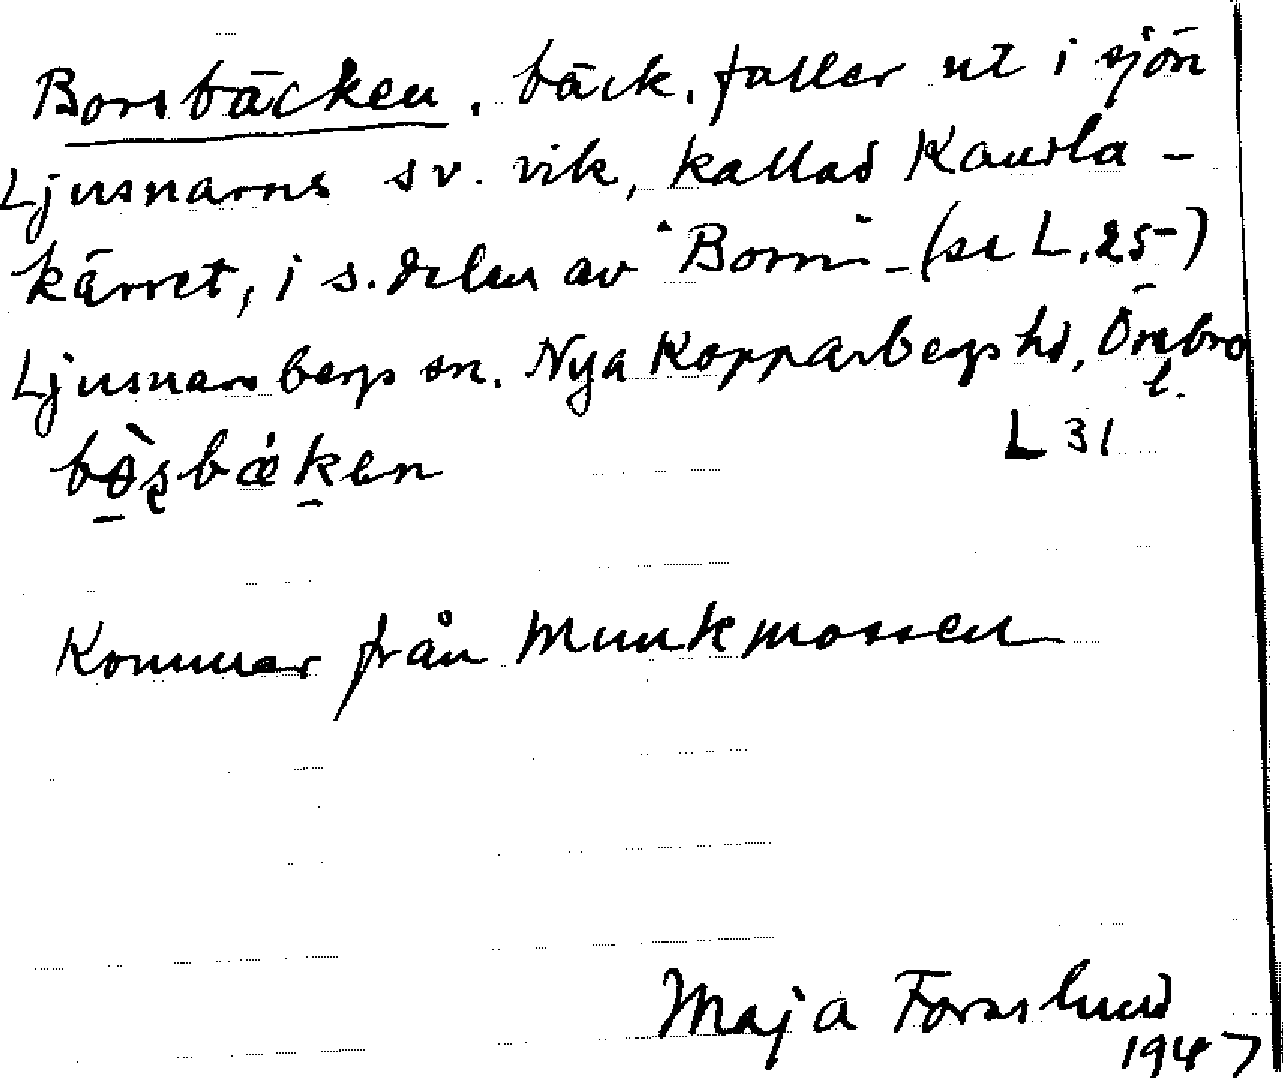 Borsbäcken, bäck, faller ut i sjön
Ljusnarns sv. vik, kallad Kaurla-
kärret, i s. delen av "Born" - (se L.25)
Ljusnarsbergs sn. Nya Kopparbergs hd, Örebro
l.
L 31
bòsbæken
Kommer från Munkmossen
Maja Forsslund
1947